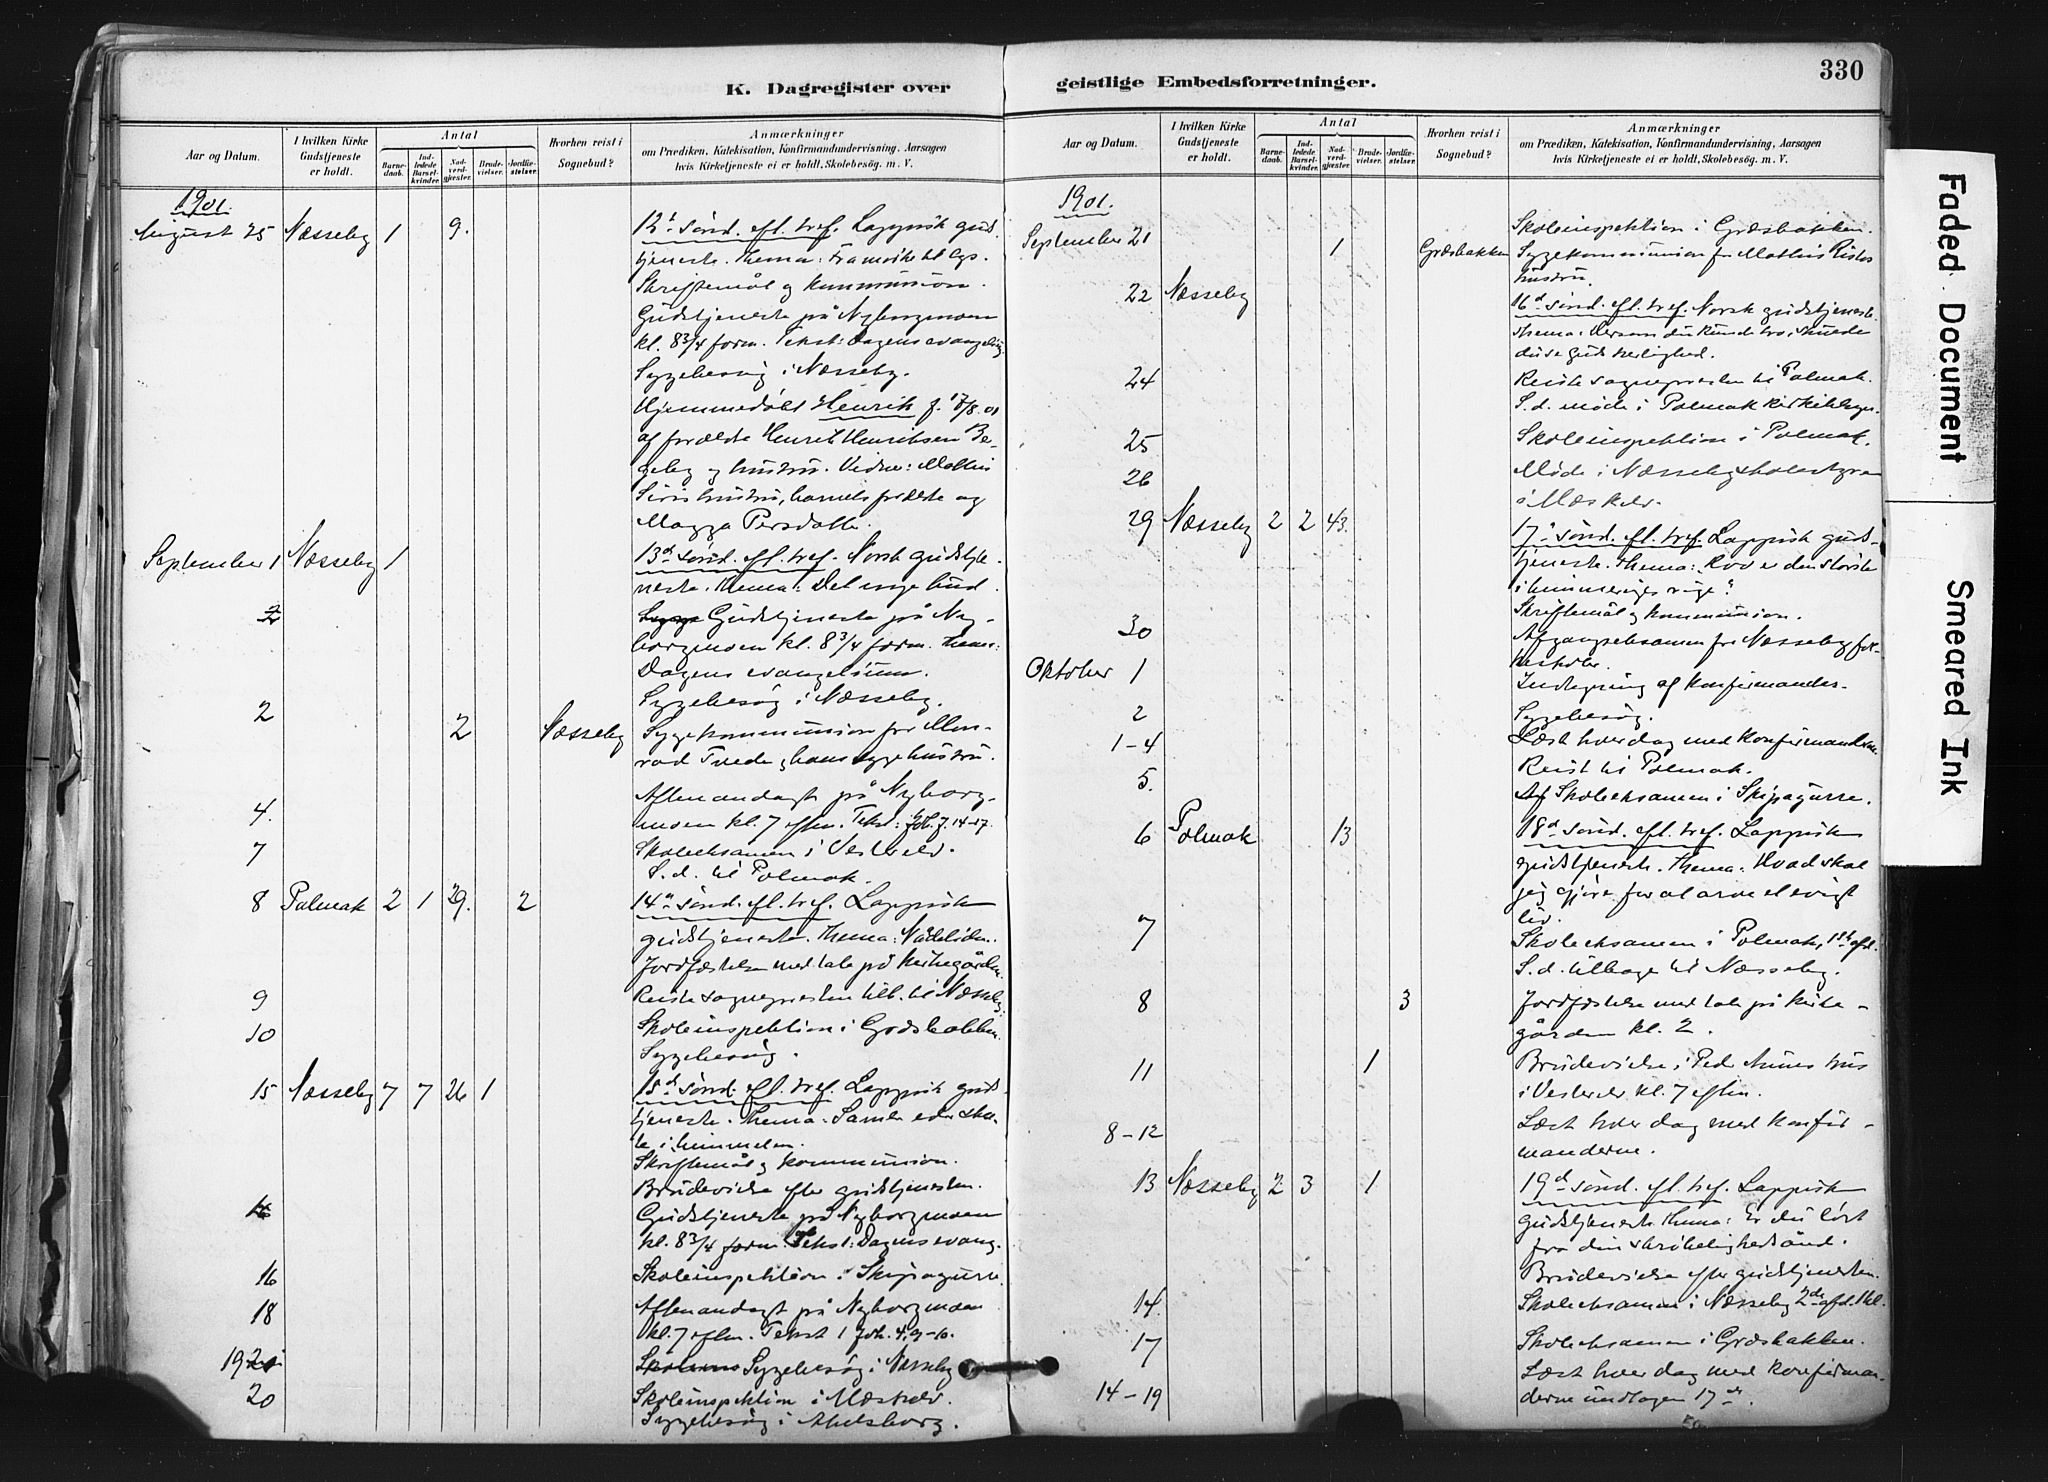 K. Dagregister over
Aar og Datum.
I hvilken Kirke Gudstjeneste er holdt.
Antal
Barnedaab.
Indledede Barselkvinder.
Nadverdgjæster.
Brudevielser.
Jordfæstelser.
Hvorhen reist i Sognebud?
Anmærkninger
om Prædiken, Katekisation, Konfirmandundervisning, Aarsagen
hvis Kirketjeneste ei er holdt, Skolebesög, m. V.
1901.
August 25 Næsseby 1 9. 12te sønd. eft. tref. Lappisk guds-
tjeneste. Thema:
Skriftemål og kommunion.
Gudstjeneste på Nyborgmoen
kl. 8 3/4 form. Tekst: Dagens evangelium.
Sygebesøg i Næsseby.
Hjemmedøbt Henrik f. 17/8.01
af forældre Henrik Henriksen
og hustru. Vidner: Mathis
hustru, barnets forældre og
Magga Persdatter.
September 1 Næsseby 1 13de sønd. eft. tref. Norsk gudstje-
neste. Thema: Det bud.
2 Gudstjeneste på Ny-
borgmoen kl. 8 3/4 form. Thema:
Dagens evangelium.
Sygebesøg i Næsseby.
2 2 Næsseby Sygekommunion for
hans syge hustru.
4. Aftenandagt på Nyborg-
moen kl. 7 eftm. Tekst: Joh. 7. 14-17.
7 Skoleeksamen i Vesterelv.
S.d. til Polmak.
8 Polmak 2 1 29. 2 14de sønd. eft. tref. Lappisk
gudstjeneste. Thema: Nådetiden.
Jordfæstelse med tale på kirkegården.
9 Reiste sognepresten tilb. til Næsseby.
10 Skoleinspektion i Græsbakken.
Sygebesøg.
15 Næsseby 7 7 26 1 15de sønd. eft. tref. Lappisk guds-
tjeneste. Thema: Samler eder skat-
te i himmelen.
Skriftemål og kommunion.
Brudevielse efter gudstjenesten.
Gudstjeneste på Nyborgmoen
kl. 8 3/4 form. Tekst: Dagens evang.
16 Skoleinspektion i Skipagurra.
18 Aftenandagt på Nyborgmoen
kl. 7 eftm. Tekst 1 Joh. 4. 9-10.
19 Sygebesøg i Næsseby
20 Skoleinspektion i Mæskelv.
Sygebesøg i Abelsborg.
330
geistlige Embedsforretninger.
Aar og Datum.
I hvilken Kirke Gudstjeneste er holdt.
Antal
Barnedaab.
Indledede Barselkvinder.
Nadverdgjæster.
Brudevielser.
Jordfæstelser.
Hvorhen reist i Sognebud?
Anmærkninger
om Prædiken, Katekisation, Konfirmandundervisning, Aarsagen
hvis Kirketjeneste ei er holdt, Skolebesög, m. V.
1901.
September 21 Skoleinspektion i Græsbakken.
1 Græsbakken Sygekommunion for Mathis
hustru.
22 Næsseby 16de sønd. eft. tref. Norsk gudstjeneste.
Thema: Dersom du kunde tro, skulde
du se Guds herlighed.
24 Reiste sognepresten til Polmak.
S.d. møde i Polmak
25 Skoleinspektion i Polmak.
26 Møde i Næsseby skolestyre
i Mæskelv.
29 Næsseby 2 2 43. 17de sønd. eft. tref. Lappisk guds-
tjeneste. Thema: Hvo er den største
i himmeriges rige?
Skriftemål og kommunion.
30 Afgangseksamen for Næsseby fol-
keskoler.
Oktober 1 Indtegning af konfirmander.
2 Sygebesøg.
1-4 Læst hver dag med konfirmanderne.
5. Reist til Polmak.
Skoleeksamen i Skipagurra.
6 Polmak 13 18de sønd. eft. tref. Lappisk
gudstjeneste. Thema: Hvad skal
jeg gjøre for at arve et evigt
liv.
7 Skoleeksamen i Polmak, 1ste afd.
S.d. tilbage til Næsseby.
8 3 Jordfæstelse med tale på kirke-
gården kl. 2.
11 1 Brudevielse i hus
i Vesterelv kl. 7 eftm.
8-12 Læst hver dag med konfir-
manderne.
13 Næsseby 2 3 1 19de sønd. eft. tref. Lappisk
gudstjeneste. Thema: Er du løst
fra din skrøbelighedsånd.
Brudevielse efter gudstjenesten.
14. Skoleeksamen i Næsseby 2den afd. 1 kl.
17 Skoleeksamen i Græsbakken.
14-19 Læst hver dag med konfirman-
derne undtagen 17de.
Faded Document
Smeared Ink